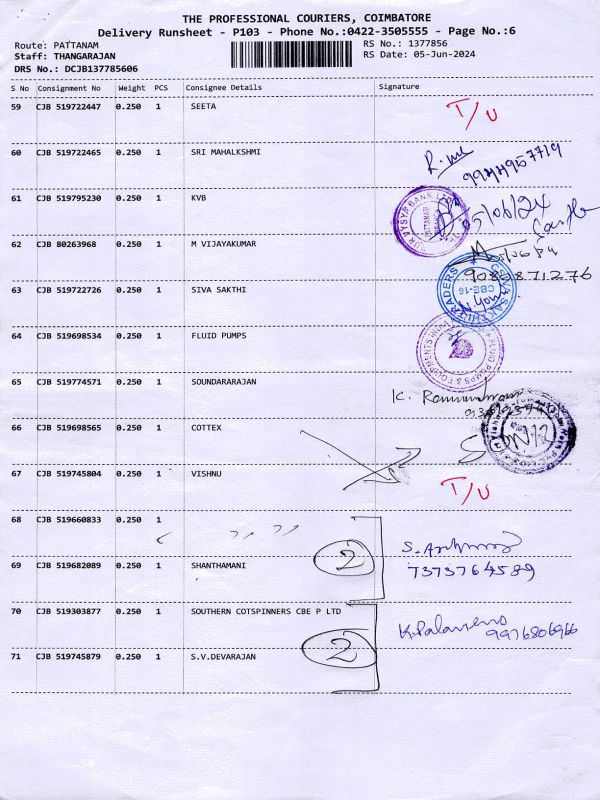 THE PROFESSIONAL COURIERS, COIMBATORE
Delivery Runsheet - P103 - Phone No.:0422-3505555 - Page No.:6
Route: PATTANAM
RS No.: 1377856
Staff: THANGARAJAN
RS Date: 05-Jun-2024
DRS No.: DCJB137785606
S No Consignment No Weight PCS Consignee Details Signature
59 CJB 519722447 0.250 1 SEETA T/U
60 CJB 519722465 0.250 1 SRI MAHALKSHMI
9944957719
61 CJB 519795230 0.250 1 KVB 05/06/24
62 CJB 80263968 0.250 1 M VIJAYAKUMAR
9085871276
63 CJB 519722726 0.250 1 SIVA SAKTHI
CBE-16
64 CJB 519698534 0.250 1 FLUID PUMPS
65 CJB 519774571 0.250 1 SOUNDARARAJAN
66 CJB 519698565 0.250 1 COTTEX
67 CJB 519745804 0.250 1 VISHNU T/U
68 CJB 519660833 0.250 1
69 CJB 519682089 0.250 1 SHANTHAMANI 2 7373764589
70 CJB 519303877 0.250 1 SOUTHERN COTSPINNERS CBE P LTD
9976806966
2
71 CJB 519745879 0.250 1 S.V.DEVARAJAN